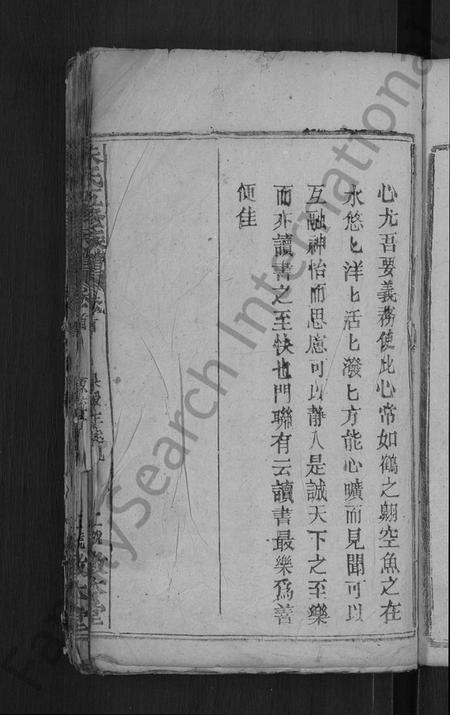 心尤吾要義務使此心常如鶴之翺空魚之在
水悠匕洋匕活匕潑匕方能心曠而見聞可以
互融神怡而思慮可以靜入是誠天下之至樂
而亦讀書之至快也門聯有云讀書最樂爲善
便佳
FamilySearch International